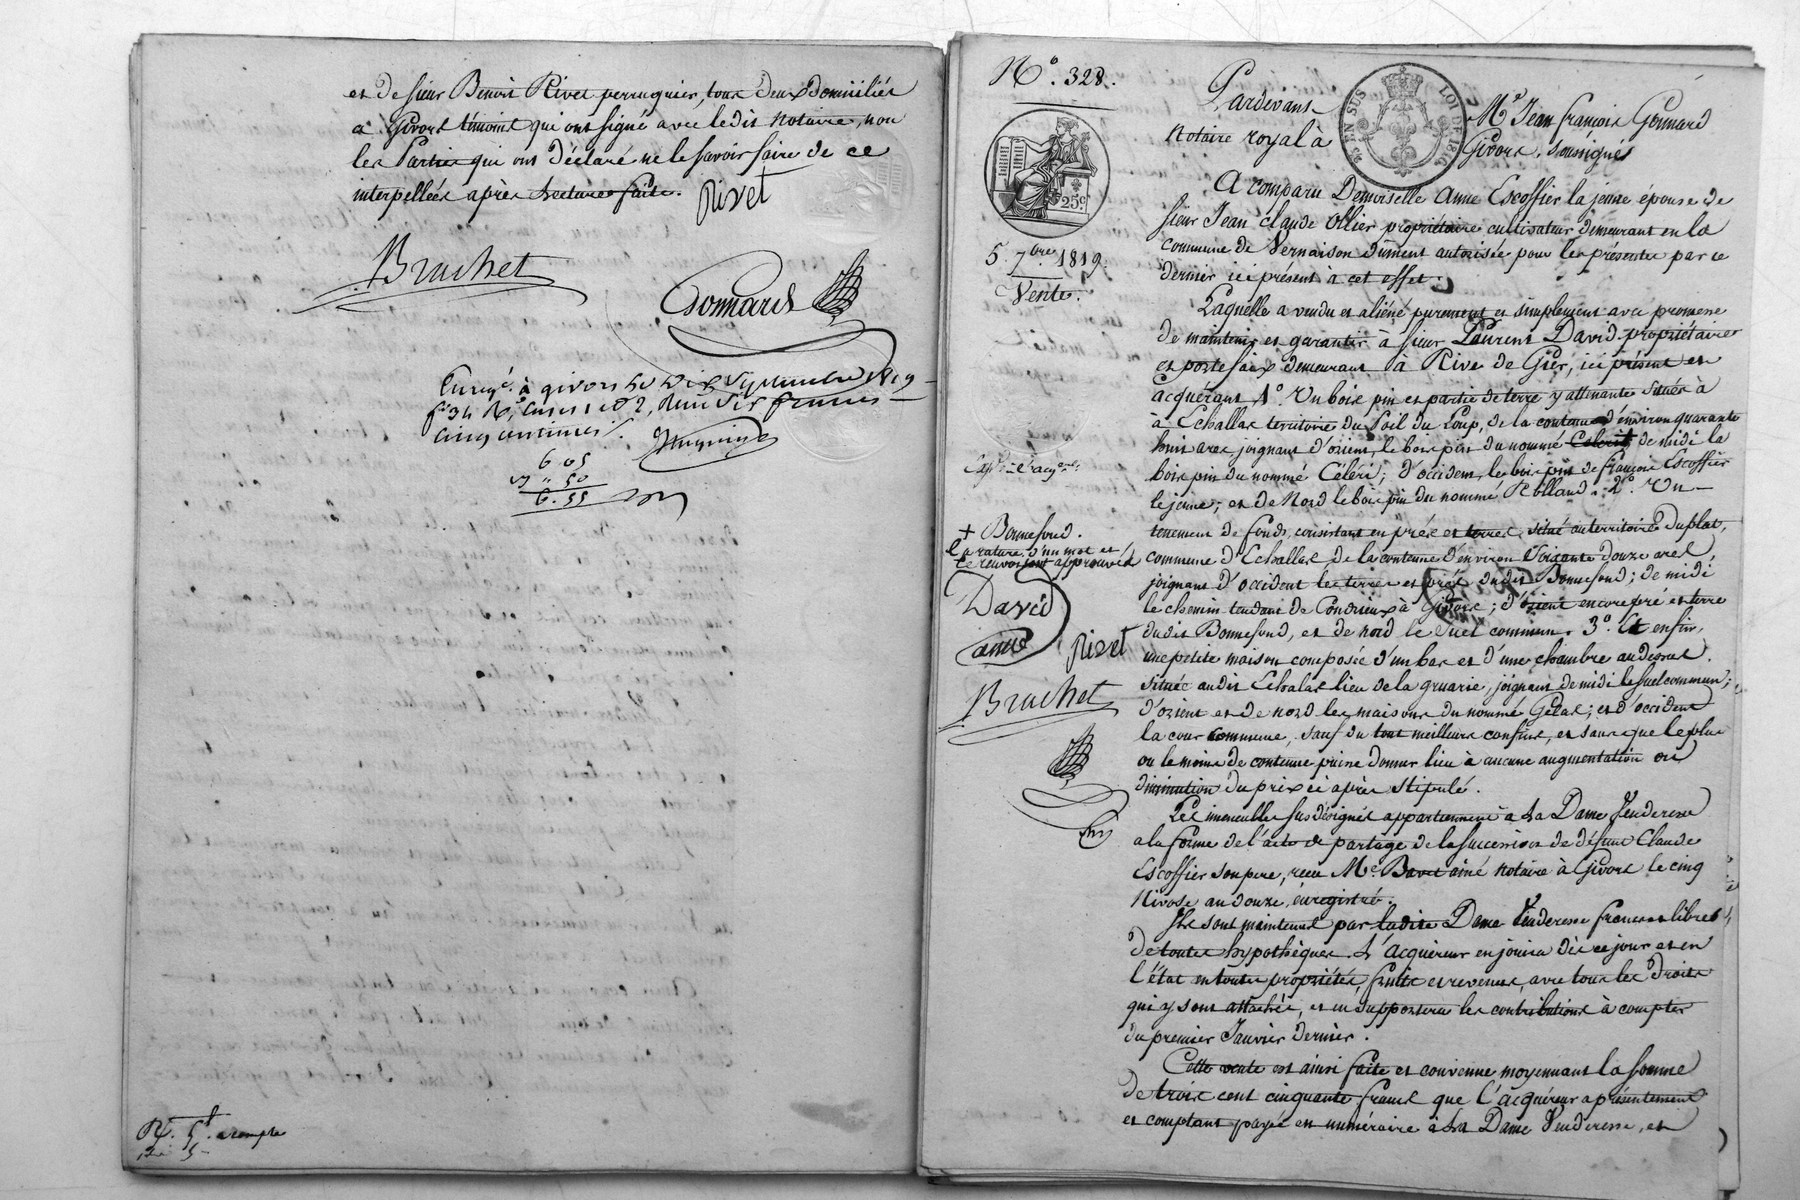 et de sieur Benoit Rivet perruquier, tous deux Domiciliés
a Givors témoins qui ont signé avec ledit Notaire, non
les Parties qui ont Déclaré ne le savoir faire de ce
interpellées après Lecture faite.
Rivet
Brachet
Gonnard
Enreg.é à givors le dix Septembre 1819
f° 34 R.°
cinq centimes
6 05
" 50
6. 55
N.° 328.
25c
5. 7bre 1819
Vente.
Pardevant Me Jean François Gonnard
Notaire royal à Givors, soussigné
EN SUS LOI DE 1816
A comparu Demoiselle Anne Escoffier la jeune épouse de
sieur Jean Claude Ollier propriétaire cultivateur demeurant en la
commune de Vernaison dûment autorisée pour les présentes par ce
dernier ici présent à cet effet.
Laquelle a vendu et aliéné purement et simplement avec promesse
de maintenir et garantir à sieur Laurent David propriétaire
et portefaix demeurant à Rive de Gier, ici présent et
acquérant 1.° Un bois pin et partie de terre y attenante situés à
à Echallas territoire du Poil du Loup, de la contenue d'environ quarante
huit ares, joignant d'orient, le bois pin du nommé + de midi le
bois pin du nommé Céléri; d'occident, le bois pin de françois Escoffier
le jeune; et de Nord le bois pin du nommé Rolland. 2.° Un
tenement de fonds, consistant en prés et terres, situé au territoire du plat,
commune d'Echallas de la contenue d'environ soixante douze ares,
joignant d'occident les terres et prés dudit Bonnefond; de midi
le chemin tendant de Condrieux à Givors; d'orient encore pré et terre
dudit Bonnefond, et de nord le suel commun. 3.° Et enfin,
une petite maison composée d'un bas et d'une chambre au dessus.
située audit Echalas lieu de la gruarie, joignant de midi le suel commun;
d'orient et de nord les maisons du nommé Gélas; et d'occident
la cour commune, sauf du tout meilleurs confins, et sans que le plus
ou le moins de contenue puisse donner lieu à aucune augmentation ou
diminution du prix ci après stipulé.
+ Bonnefond.
la rature d'un mot et
le renvoi sont approuvés
David
ainé
Rivet
Brachet
Les immeubles sus désignés appartiennent à la Dame Venderesse
a la forme de l'acte de partage de la succession de défunt Claude
Escoffier son père, reçu Me. Bavet ainé Notaire à Givors le cinq
Nivose an douze, énregistré.
Ils sont maintenus par ladite Dame Venderesse francs et libres
de toutes hypothèques. L'acquéreur en jouira dès ce jour et en
l'état en toute propriété, fruits et revenus, avec tous les droits
qui y sont attachés, et en supportera les contributions à compter
du premier Janvier dernier.
Cette vente est ainsi faite et convenue moyennant la somme
de trois cent cinquante francs que l'acquéreur a présentement
et comptant payé en numéraire à la Dame Venderesse, et